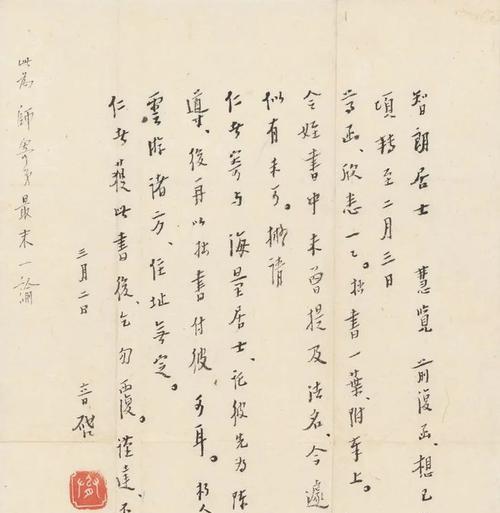 智朗居士 慧覽 前復函、想已
頃轉至二月三日
函、欣悉一一。拙書一葉、附奉上。
令姪書中未曾提及法名、今遽
似有未可。擬請
仁者寄与海量居士、託彼先为陳
導、後再以拙書付彼可耳。朽人
雲游諸方、住址無定。
仁者獲此書後、乞勿復。謹達、不
三月二日 音啓
此為師寄弟最末一諭